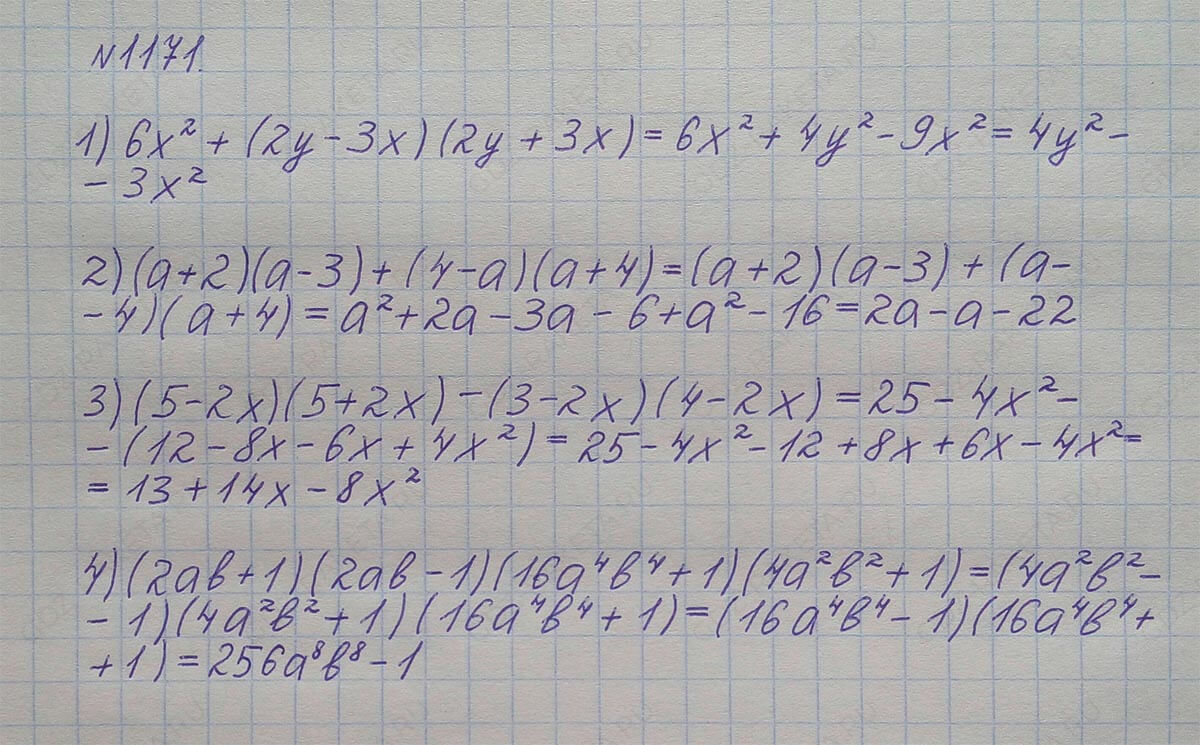 №1171.
1) 6x² + (2y − 3x)(2y + 3x) = 6x² + 4y² − 9x² = 4y² −
− 3x²
2) (a+2)(a−3) + (4−a)(a+4) = (a+2)(a−3) + (a−
−4)(a+4) = a² + 2a − 3a − 6 + a² − 16 = 2a − a − 22
3) (5−2x)(5+2x) − (3−2x)(4−2x) = 25 − 4x² −
− (12 − 8x − 6x + 4x²) = 25 − 4x² − 12 + 8x + 6x − 4x² =
= 13 + 14x − 8x²
4) (2ab+1)(2ab−1)(16a⁴b⁴+1)(4a²b²+1) = (4a²b² −
− 1)(4a²b²+1)(16a⁴b⁴+1) = (16a⁴b⁴−1)(16a⁴b⁴+
+1) = 256a⁸b⁸ − 1